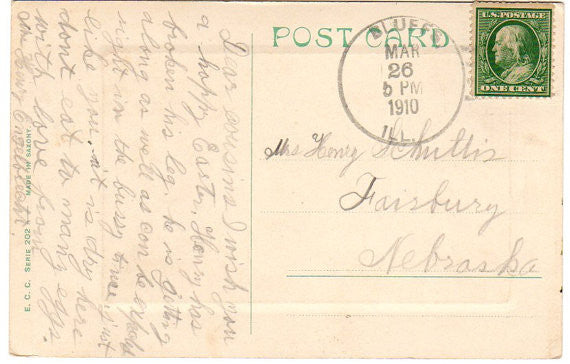 POST CARD
U.S. POSTAGE
ONE CENT
BLUFF
MAR
26
5 PM
1910
ILL.
Mrs Henry Schultis
Fairbury
Nebraska
Dear cousins I wish you
a happy Easter, Henry has
broken his leg he is getting
along as well as can be expected
right in the busy time, just
like you. it is dry here
dont eat to many eggs.
with love from
Mrs Henry
E. C. C. SERIE 202 MADE IN SAXONY.